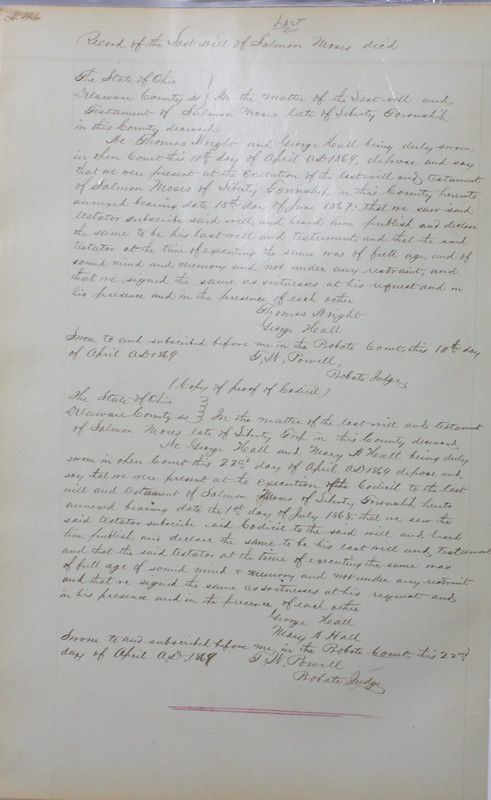 Last
Record of the Last will of Salmon Moses dec'd
The State of Ohio
Delaware County ss In the matter of the Last will and
Testament of Salmon Moses late of Liberty Township
in this County deceased
We Thomas Wright and George Heall being duly sworn
in open Court this 10th day of April A.D 1869, depose and say
that we were present at the execution of the last will and testament
of Salmon Moses of Liberty Township in this County hereto
annexed bearing date 18th day of June 1867: that we saw said
testator subscribe said will and heard him publish and declare
the same to be his last will and testament, and that the said
testator at the time of executing the same was of full age, and of
sound mind and memory and not under any restraint, and
that we signed the same as witnesses at his request and in
his presence and in the presence of each other
Thomas Wright
George Heall
Sworn to and subscribed before me in the Probate Court, this 10th day
of April AD 1869 T. W. Powell,
Probate Judge
(Copy of proof of Codicil)
The State of Ohio
Delaware County ss In the matter of the last will and testament
of Salmon Moses late of Liberty Twp in this County deceased,
We George Heall and Mary A Heall being duly
sworn in open Court this 22nd day of April A.D 1869 depose and
say that we were present at the execution of the Codicil to the last
will and testament of Salmon Moses of Liberty Township hereto
annexed bearing date the 1st day of July 1868: that we saw the
said testator subscribe said Codicil to the said will and heard
him publish and declare the same to be his last will and testament
and that the said testator at the time of executing the same was
of full age of sound mind & memory and not under any restraint
and that we signed the same as witnesses at his request and
in his presence and in the presence of each other
George Heall
Mary A Hall
Sworn to and subscribed before me, in the Probate Court, this 22nd
day of April A.D, 1869 T. W. Powell
Probate Judge